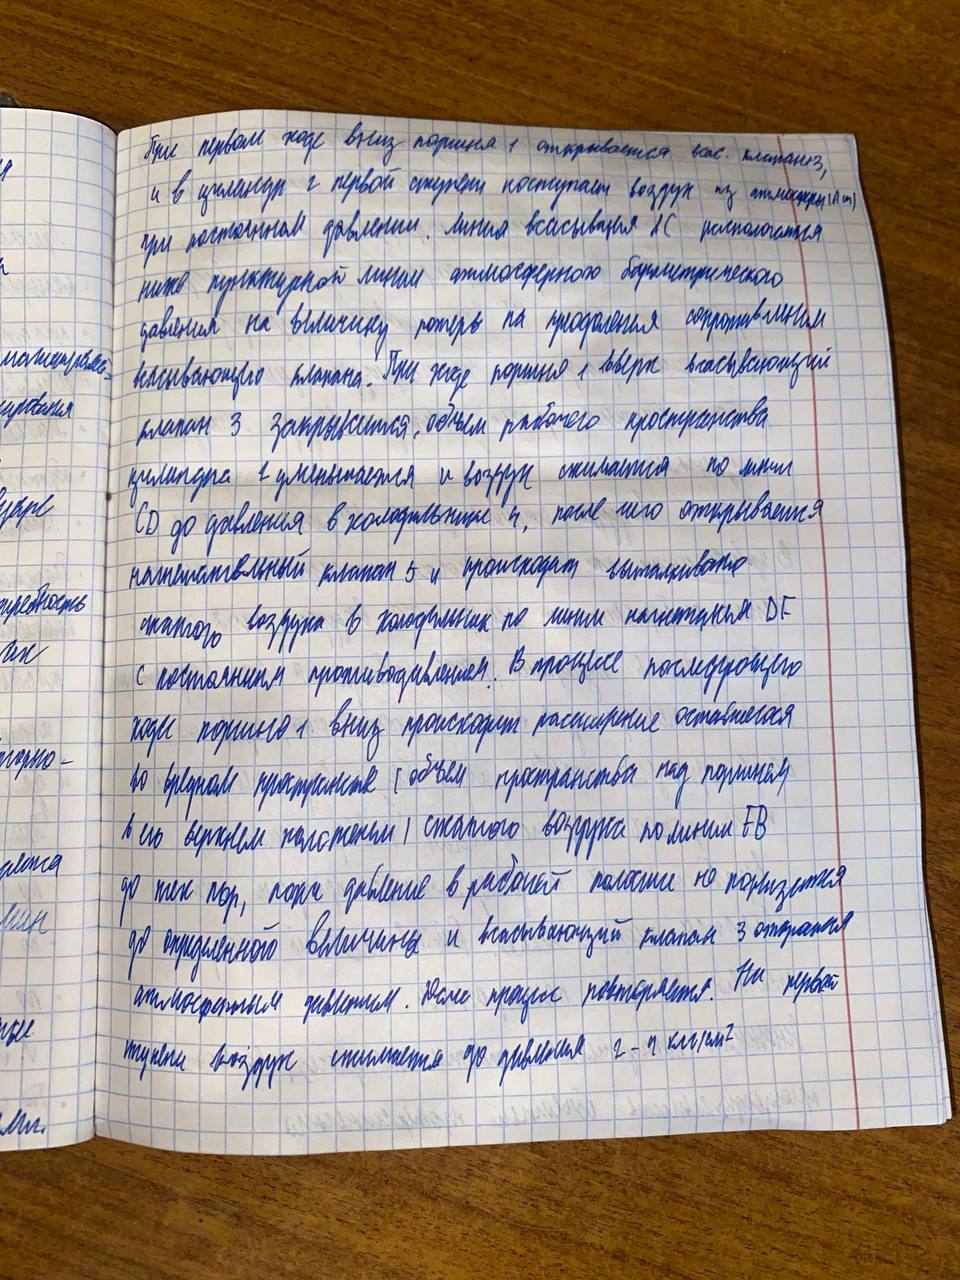 При первом ходе вниз поршня 1 открывается вас. клапан 3,
и в цилиндр 2 первой ступени поступает воздух из атмосферы (Am)
при постоянном давлении. Линия всасывания AC располагается
ниже пунктирной линии атмосферного барометрического
давления на величину потерь на преодоления сопротивления
всасывающего клапана. При ходе поршня 1 вверх всасывающий
клапан 3 закрывается, объем рабочего пространства
цилиндра 2 уменьшается и воздух сжимается по линии
CD до давления в холодильнике 4, после чего открывается
нагнетательный клапан 5 и происходит выталкивание
сжатого воздуха в холодильник по линии нагнетания DF
с постоянным противодавлением. В процессе последующего
хода поршня 1 вниз происходит расширение оставшегося
во вредном пространстве (объем пространства над поршнем
в его верхнем положении) сжатого воздуха по линии FB
до тех пор, пока давление в рабочей полости не понизится
до определенного величины и всасывающий клапан 3 откроется
атмосферным давлением. Далее процесс повторяется. На первой
ступени воздух сжимается до давления 2-4 кгс/см²
матизирова-
ция
ребность
гично-
яется